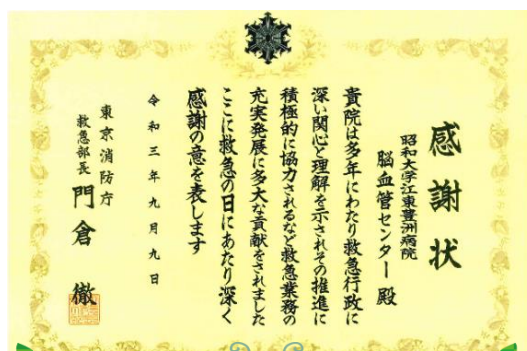 感謝状
昭和大学江東豊洲病院
脳血管センター 殿
貴院は多年にわたり救急行政に
深い関心と理解を示されその推進に
積極的に協力されるなど救急業務の
充実発展に多大な貢献をされました
ここに救急の日にあたり深く
感謝の意を表します
令和三年九月九日
東京消防庁
救急部長 門倉 徹